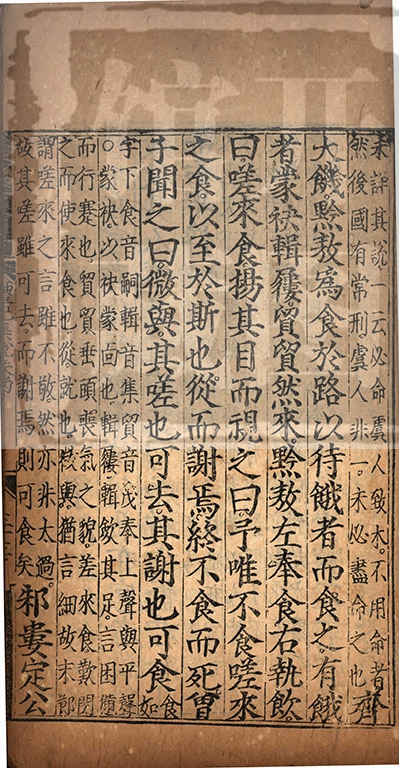 未詳其說一云必命虞人致木不用命者
然後國有常刑虞人非一未必盡命之也齊
大饑黔敖為食於路以待餓者而食之有餓
者蒙袂輯屨貿貿然來黔敖左奉食右執飲
曰嗟來食揚其目而視之曰予唯不食嗟來
之食以至於斯也從而謝焉終不食而死曾
子聞之曰微與其嗟也可去其謝也可食食如
字下食音嗣輯音集貿音茂奉上聲與平聲
○蒙袂以袂蒙面也輯屨輯斂其足言困憊
而行蹇也貿貿垂頭喪氣之貌嗟來食歎閔
之而使來食也從就也微與猶言細故末節
謂嗟來之言雖不敬然亦非太過
故其嗟雖可去而謝焉則可食矣邾婁定公